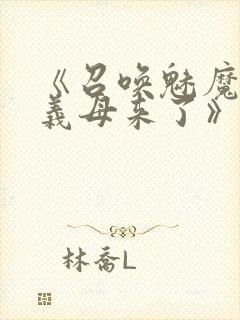 《召唤魅魔
義母来了》
林喬L